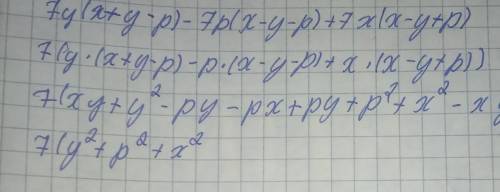 7y(x+y-p)-7p(x-y-p)+7x(x-y+p)
7(y·(x+y-p)-p·(x-y-p)+x·(x-y+p))
7(xy+y²-py-px+py+p²+x²-xy
7(y²+p²+x²